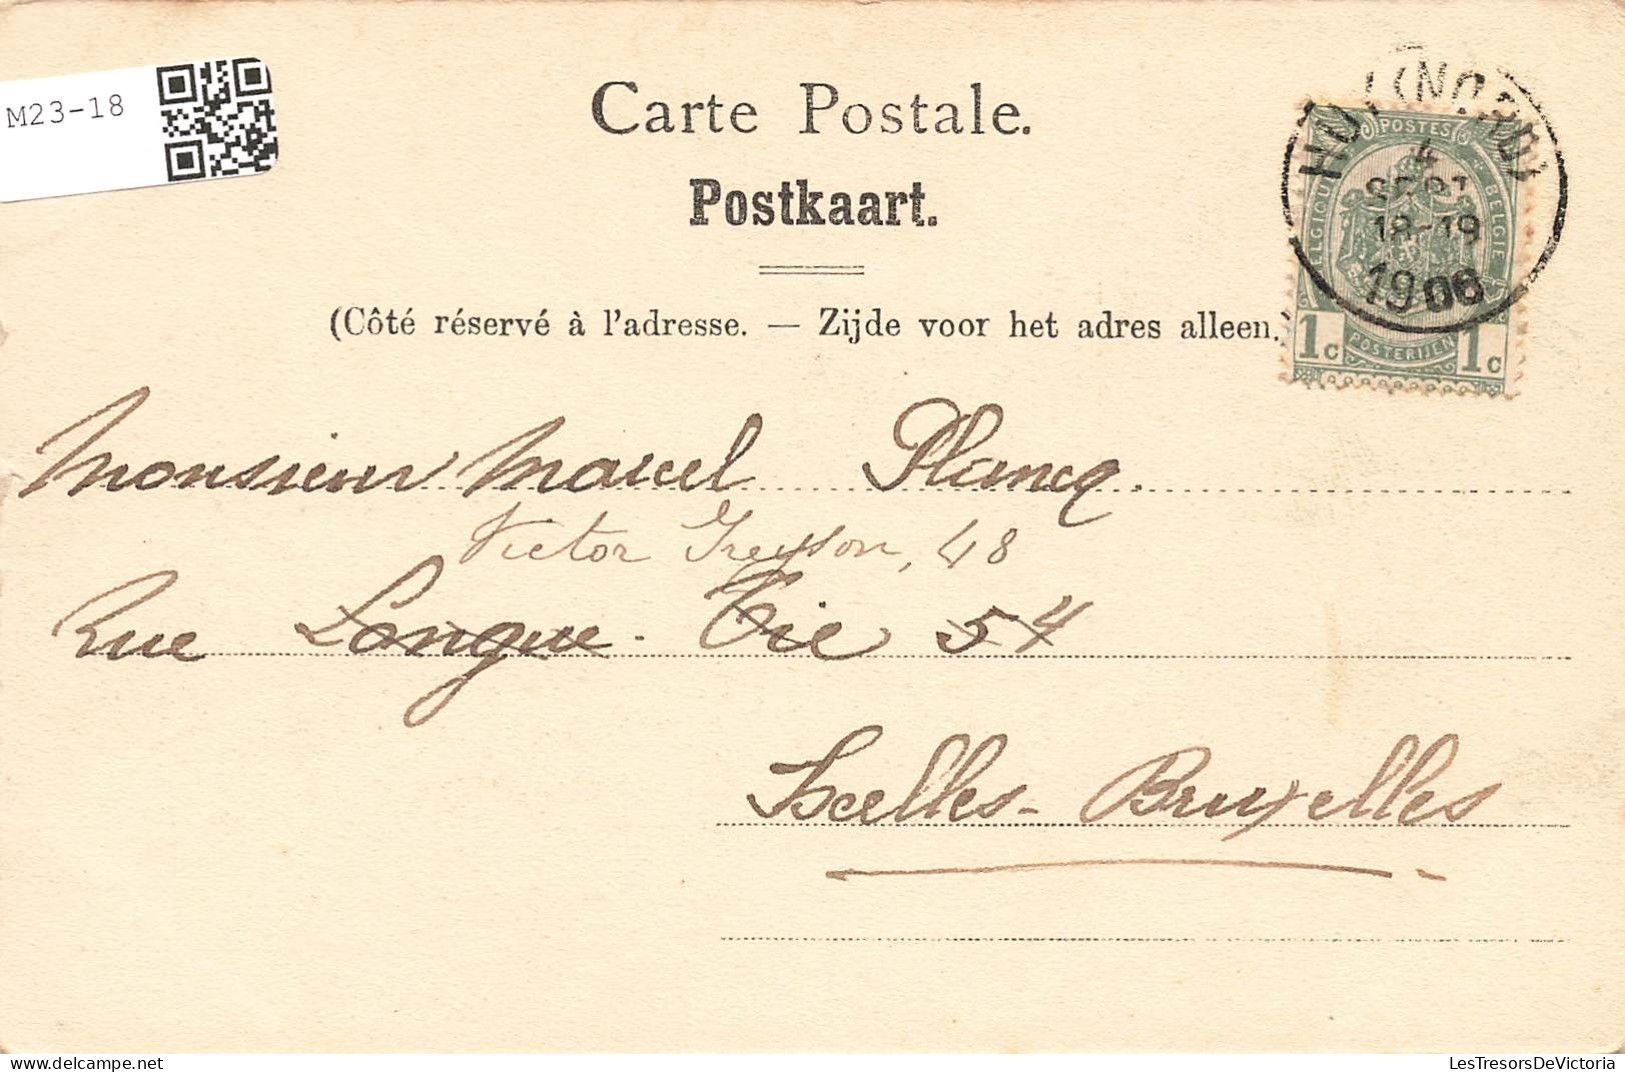 M23-18
Carte Postale.
Postkaart.
(Côté réservé à l'adresse. — Zijde voor het adres alleen.
HUY (NORD)
4
SEPT
18-19
1906
POSTES
BELGIQUE
BELGIE
1c POSTERIJEN 1c
Monsieur Marcel Plancq.
Victor Greyson, 48
Rue Longue Vie 54
Ixelles-Bruxelles
LesTresorsDeVictoria